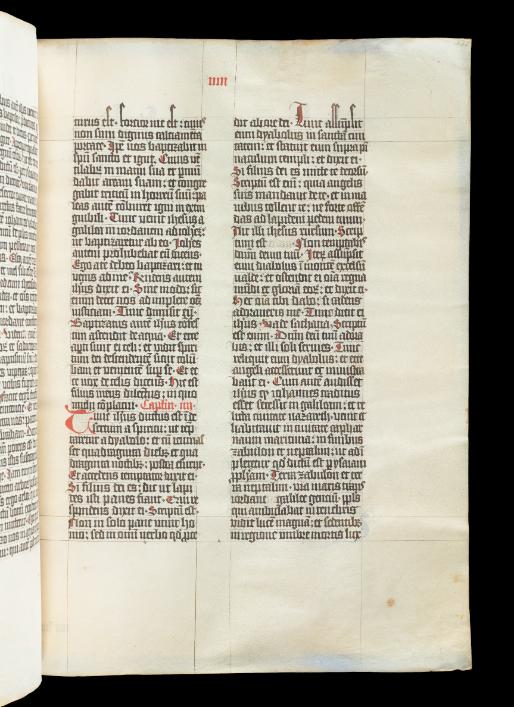 IIII
turus est · fortior me est : cuius
non sum dignus calciamēta
portare · Ipe vos baptizabit in
spū sancto et igni · Cuius vē
tilabrū in manu sua et pmū
dabit aream suam : et congre
gabit triticū in horreū suū : pa
leas autē cōburet igni in extin
guibili · Tunc venit ihesus a
galilea in iordanem ad iohēs :
ut baptizaretur ab eo · Johēs
autem prohibebat eū dicens ·
Ego a te debeo baptizari : et tu
venis ad me · Rn̄dens autem
ihus dixit ei · Sine modo : sic
enim decet nos adimplere oēm
iusticiam · Tunc dimisit eū ·
Baptizatus autē ihus confes
tim ascendit de aqua · Et ecce
apti sunt ei celi : et vidit spiri
tum dei descendentē sicut colū
bam et venientē sup se · Et ec
ce vox de celis dicens · Hic est
filius meus dilectus : in quo
michi cōplacui · Capitm iiij
Tunc ihsus ductus est ī de
sertum a spiritu : ut tep
taretur a dyabolo : et cū ieiunas
set quadraginta diebz et qua
draginta noctibz : postea esuriit ·
Et accedens temptator dixit ei ·
Si filius dei es : dic ut lapi
des isti panes fiant · Qui re
spondens dixit ei · Scriptū est ·
Non in solo pane vivit ho
mo : sed in omi verbo qd pce
dit de ore dei · Tunc assūpsit
eum dyabolus in sanctā civi
tatem : et statuit eum supra pī
naculum templi : et dixit ei ·
Si filius dei es mitte te deorsū ·
Scriptū est eni : quia angelis
suis mandavit de te : et in ma
nibus tollent te : ne forte offē
das ad lapidem pedem tuum ·
Ait illi ihesus rursum · Scrip
tum est · Non temptabis
dnm deum tuū · Iterū assūpsit
eum dyabolus ī montē excelsū
valde : et ostendit ei oīa regna
mūdi et gloriā eoꝝ : et dixit ei ·
Hec oīa tibi dabo : si cadens
adoraveris me · Tunc dicit ei
ihus · Vade sathana · Scriptū
est enim · Dnm deū tuū adora
bis : et illi soli servies · Tunc
reliquit eum dyabolus : et ecce
angeli accesserunt et ministra
bant ei · Cum autē audisset
ihus qp iohannes traditus
esset : secessit in galileam : et re
licta civitate nazareth · venit et
habitavit in civitate caphar
naum maritima : in finibus
zabulon et neptalim : ut ad
pleretur qd dictū est p ysayam
pphām · Terra zabulon et ter
ra neptalim · via maris trans
iordanē galilee gencium : ppls
qui ambulabat in tenebris
vidit lucē magnā : et sedentibz
in regione umbre mortis lux